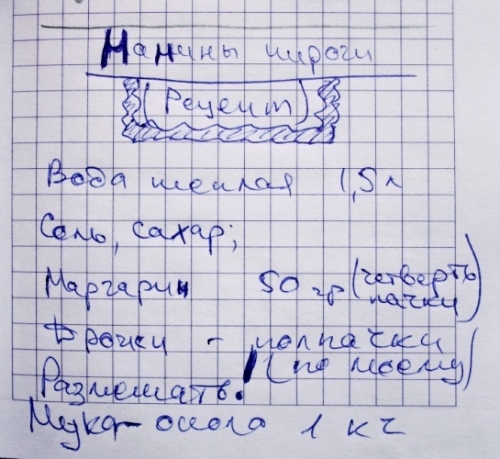 Мамины пироги
(Рецепт)
Вода теплая 1,5 л
Соль, сахар;
Маргарин 50 гр (четверть пачки)
Дрожи - полпачки
(по моему)
Размешать.
Мука - около 1 кг